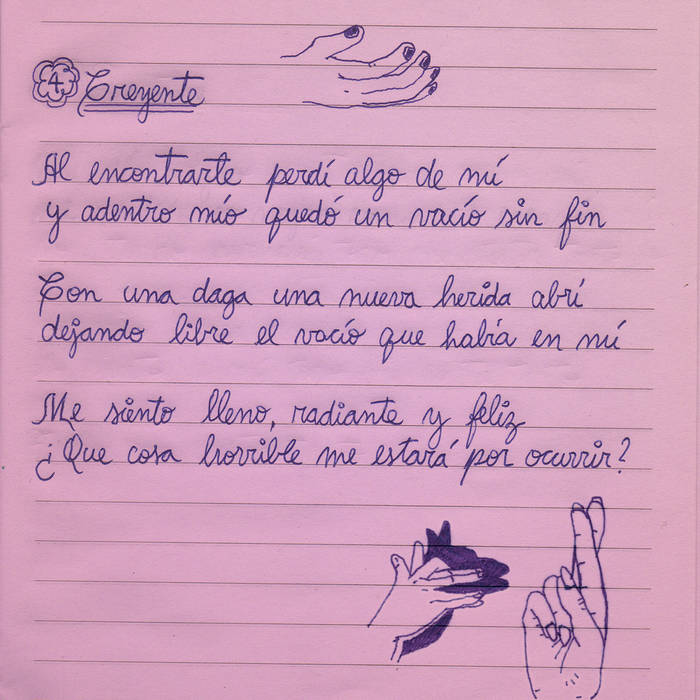 4 Creyente
Al encontrarte perdí algo de mí
y adentro mío quedó un vacío sin fin
Con una daga una nueva herida abrí
dejando libre el vacío que había en mí
Me siento lleno, radiante y feliz
¿Que cosa horrible me estará por ocurrir?